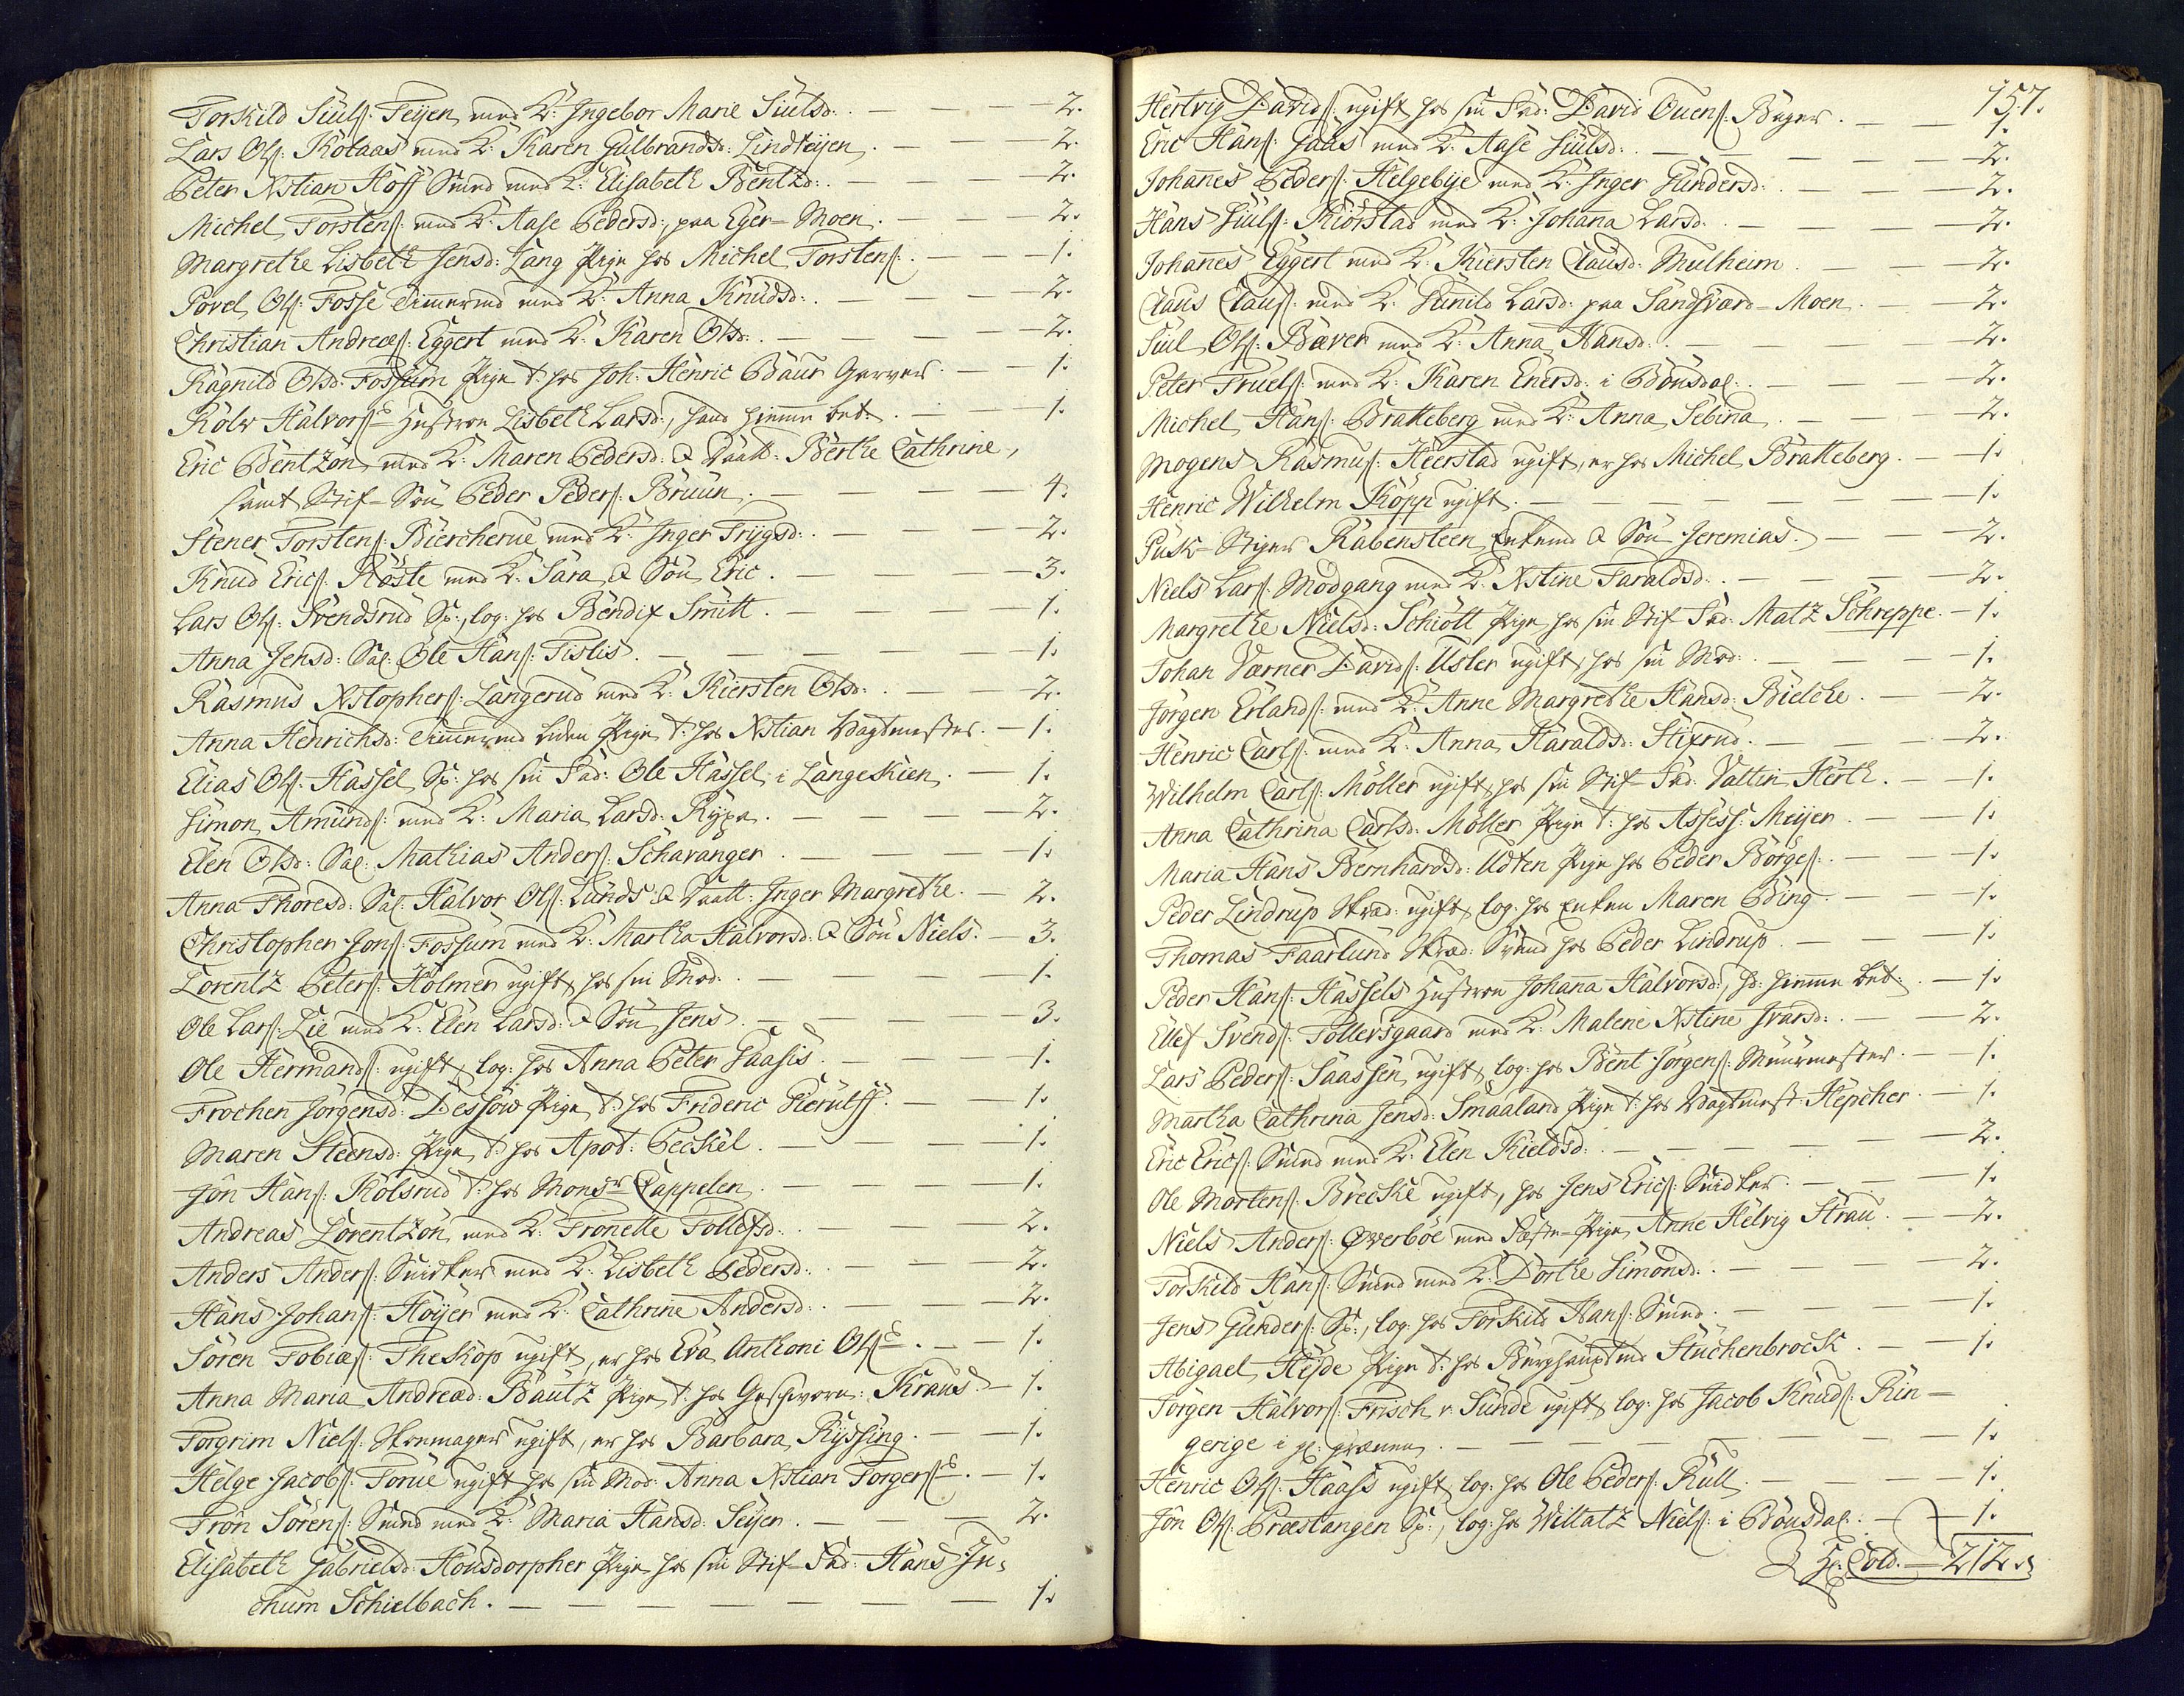 Torskild Siuls: Teijen med K: Ingebor Marie Siulsd: — — — 2.
Lars Ols: Kolaas med K: Karen Gulbrandsd: Lindteijen. — — — 2.
Peter Xstian Hoff Smed med K: Elisabeth Bentzd: — — — 2.
Michel Torstens: med K: Aase Pedersd: paa Eger-Moen. — — — 2.
Margrethe Lisbeth Jensd: Lang Pige hos Michel Torstens: — — 1.
Povel Ols: Fosse Timermd med K: Anna Knudsd: — — 2.
Christian Andreæs: Eggert med K: Karen Olsd: — — — 2.
Ragnild Olsd: Fossum Pige t: hos Joh: Henric Baur Garver. — — 1.
Rolv Halvors: Hustroe Lisbeth Larsd:, hand hiemme bet: — — 1.
Eric Bentzön med K: Maren Pedersd: & Daatt: Berthe Cathrine,
samt Stif-Søn Peder Peders: Bruun. — — — 4.
Stener Torstens: Biercherue med K: Inger Trygsd: — — 2.
Knud Erics: Røste med K: Sara, & Søn Eric. — — — 3.
Lars Ols: Svendsrud Sp:, log: hos Bendix Smitt. — — — 1.
Anna Jensd: Sal: Ole Hans: Tislis. — — — — 1.
Rasmus Xstophers: Langerud med K: Kiersten Olsd: — — 2.
Anna Henrichsd: Timermd Liden Pige t: hos Xstian Vagtmester. — 1.
Elias Ols: Hassel Sp: hos sin Fad: Ole Hassel i Langeskien. — 1.
Simon Amunds: med K: Maria Larsd: Rype. — — — 2.
Elen Olsd: Sal: Mathias Anders: Schavanger — — — 1.
Anna Thoresd: Sal: Halvor Ols: Lunds & Daatt: Inger Margrethe. — 2.
Christopher Jons: Fossum med K: Martha Halvorsd: & Søn Niels. — 3.
Lorentz Peters: Holmer ugift, hos sin Mod: — — — 1.
Ole Lars: Lie med K: Elen Larsd: & Søn Jens. — — — 3.
Ole Hermands: ugift, log: hos Anna Peter Gaasis. — — — 1.
Frochen Jørgensd: Dessow Pige t: hos Frideric Pierulff. — — 1.
Maren Steensd: Pige t: hos Apot: Peckel. — — — 1.
Jon Hans: Kolsrud t: hos Monsr Cappelen. — — — 1.
Andreas Lorentzön med K: Fronette Tollefsd: — — — 2.
Anders Anders: Snidker med K: Lisbeth Pedersd: — — — 2.
Hans Johans: Höyer med K: Cathrine Andersd: — — — 2.
Sören Tobiæs: Theskop ugift, er hos Eva Anthoni Ols: — — 1.
Anna Maria Andread: Bautz Pige t: hos Geschworn: Kraus. — 1.
Torgrim Niels: Skomager ugift, er hos Barbara Ryssing. — — 1.
Helge Jacobs: Torue ugift hos sin Mod: Anna Xstian Torgers: — 1.
Tron Sörens: Smed med K: Maria Hansd: Teijen. — — — 2.
Elisabeth Gabrielsd: Honsdorpher Pige hos sin Stif-Fad: Hans Jo-
chum Schielbach. — — — — — — 1.
157.
Hertvig Davids: ugift hos sin Fad: David Ouens: Bager. — — 1.
Eric Hans: Gaas med K: Aase Siulsd: — — — 2.
Johanes Peders: Helgebije med K: Inger Gundersd: — — — 2.
Hans Siuls: Kiorstad med K: Johana Larsd: — — — 2.
Johanes Eggert med K: Kiersten Clausd: Mulheim. — — 2.
Claus Claus: med K: Gunild Larsd: paa Sandsværd-Moen. — — 2.
Siul Ols: Bæver med K: Anna Hansd: — — — 2.
Peter Truels: med K: Karen Enersd: i Bönsdal: — — — 2.
Michel Hans: Bratteberg med K: Anna Sebina. — — — 2.
Mogens Rasmus: Heerstad ugift, er hos Michel Bratteberg. — 1.
Henric Wilhelm Kopp ugift. — — — — 1.
Puk-Stiger Rabensteen Enkemd & Søn Jeremias. — — 2.
Niels Lars: Modgang med K: Xstine Taraldsd: — — — 2.
Margrethe Nielsd: Schiött Pige hos sin Stif Fad: Matz Schreppe. — 1.
Johan Værner Davids: Usler ugift, hos sin Mod: — — — 1.
Jörgen Erlands: med K: Anne Margrethe Hansd: Bielcke. — 2.
Henric Carls: med K: Anna Haraldsd: Stixrud. — — 2.
Wilhelm Carls: Möller ugift, hos sin Stif-Fad: Vattin Herth. — 1.
Anna Cathrina Carlsd: Möller Pige t: hos Assess: Meijer. — — 1.
Maria Hans Bernhardsd: Udten Pige hos Peder Börges: — — 1.
Peder Lindrup Skræd: ugift, log: hos Enken Maren Bing. — — 1.
Thomas Faarlund Skræd: Svend hos Peder Lindrup. — — 1.
Peder Hans: Hassels Hustroe Johana Halvorsd:, hd: hiemme bet: — 1.
Ellef Svends: Tollersgaard med K: Malene Xstine Ivarsd: — 2.
Lars Peders: Saassen, ugift, log: hos Bent Jörgens: Muurmester. — 1.
Martha Cathrina Jensd: Smaaland Pige t: hos Vagtmest: Hepcher. — 1.
Eric Erics: Smed med K: Elen Kieldsd: — — — 2.
Ole Mortens: Brecke ugift, hos Jens Erics: Snidker. — — 1.
Niels Anders: Øverböe med Fæste-Pige Anne Helvig Strau. — 2.
Torskild Hans: Smed med K: Dorthe Simonsd: — — — 2.
Jens Gunders: Sp:, log: hos Torskild Hans: Smed. — — — 1.
Abigael Heyde Pige t: hos Berghauptmd Stuckenbrock. — 1.
Törgen Halvors: Frisch v: Sunde ugift, log: hos Jacob Knuds: Rin-
gerige i gl: grænen. — — — — 1.
Henric Ols: Haass ugift, log: hos Ole Peders: Rull. — — 1.
Jon Ols: Præstangen Sp:, log: hos Willatz Niels: i Bönsdal: — 1.
212.